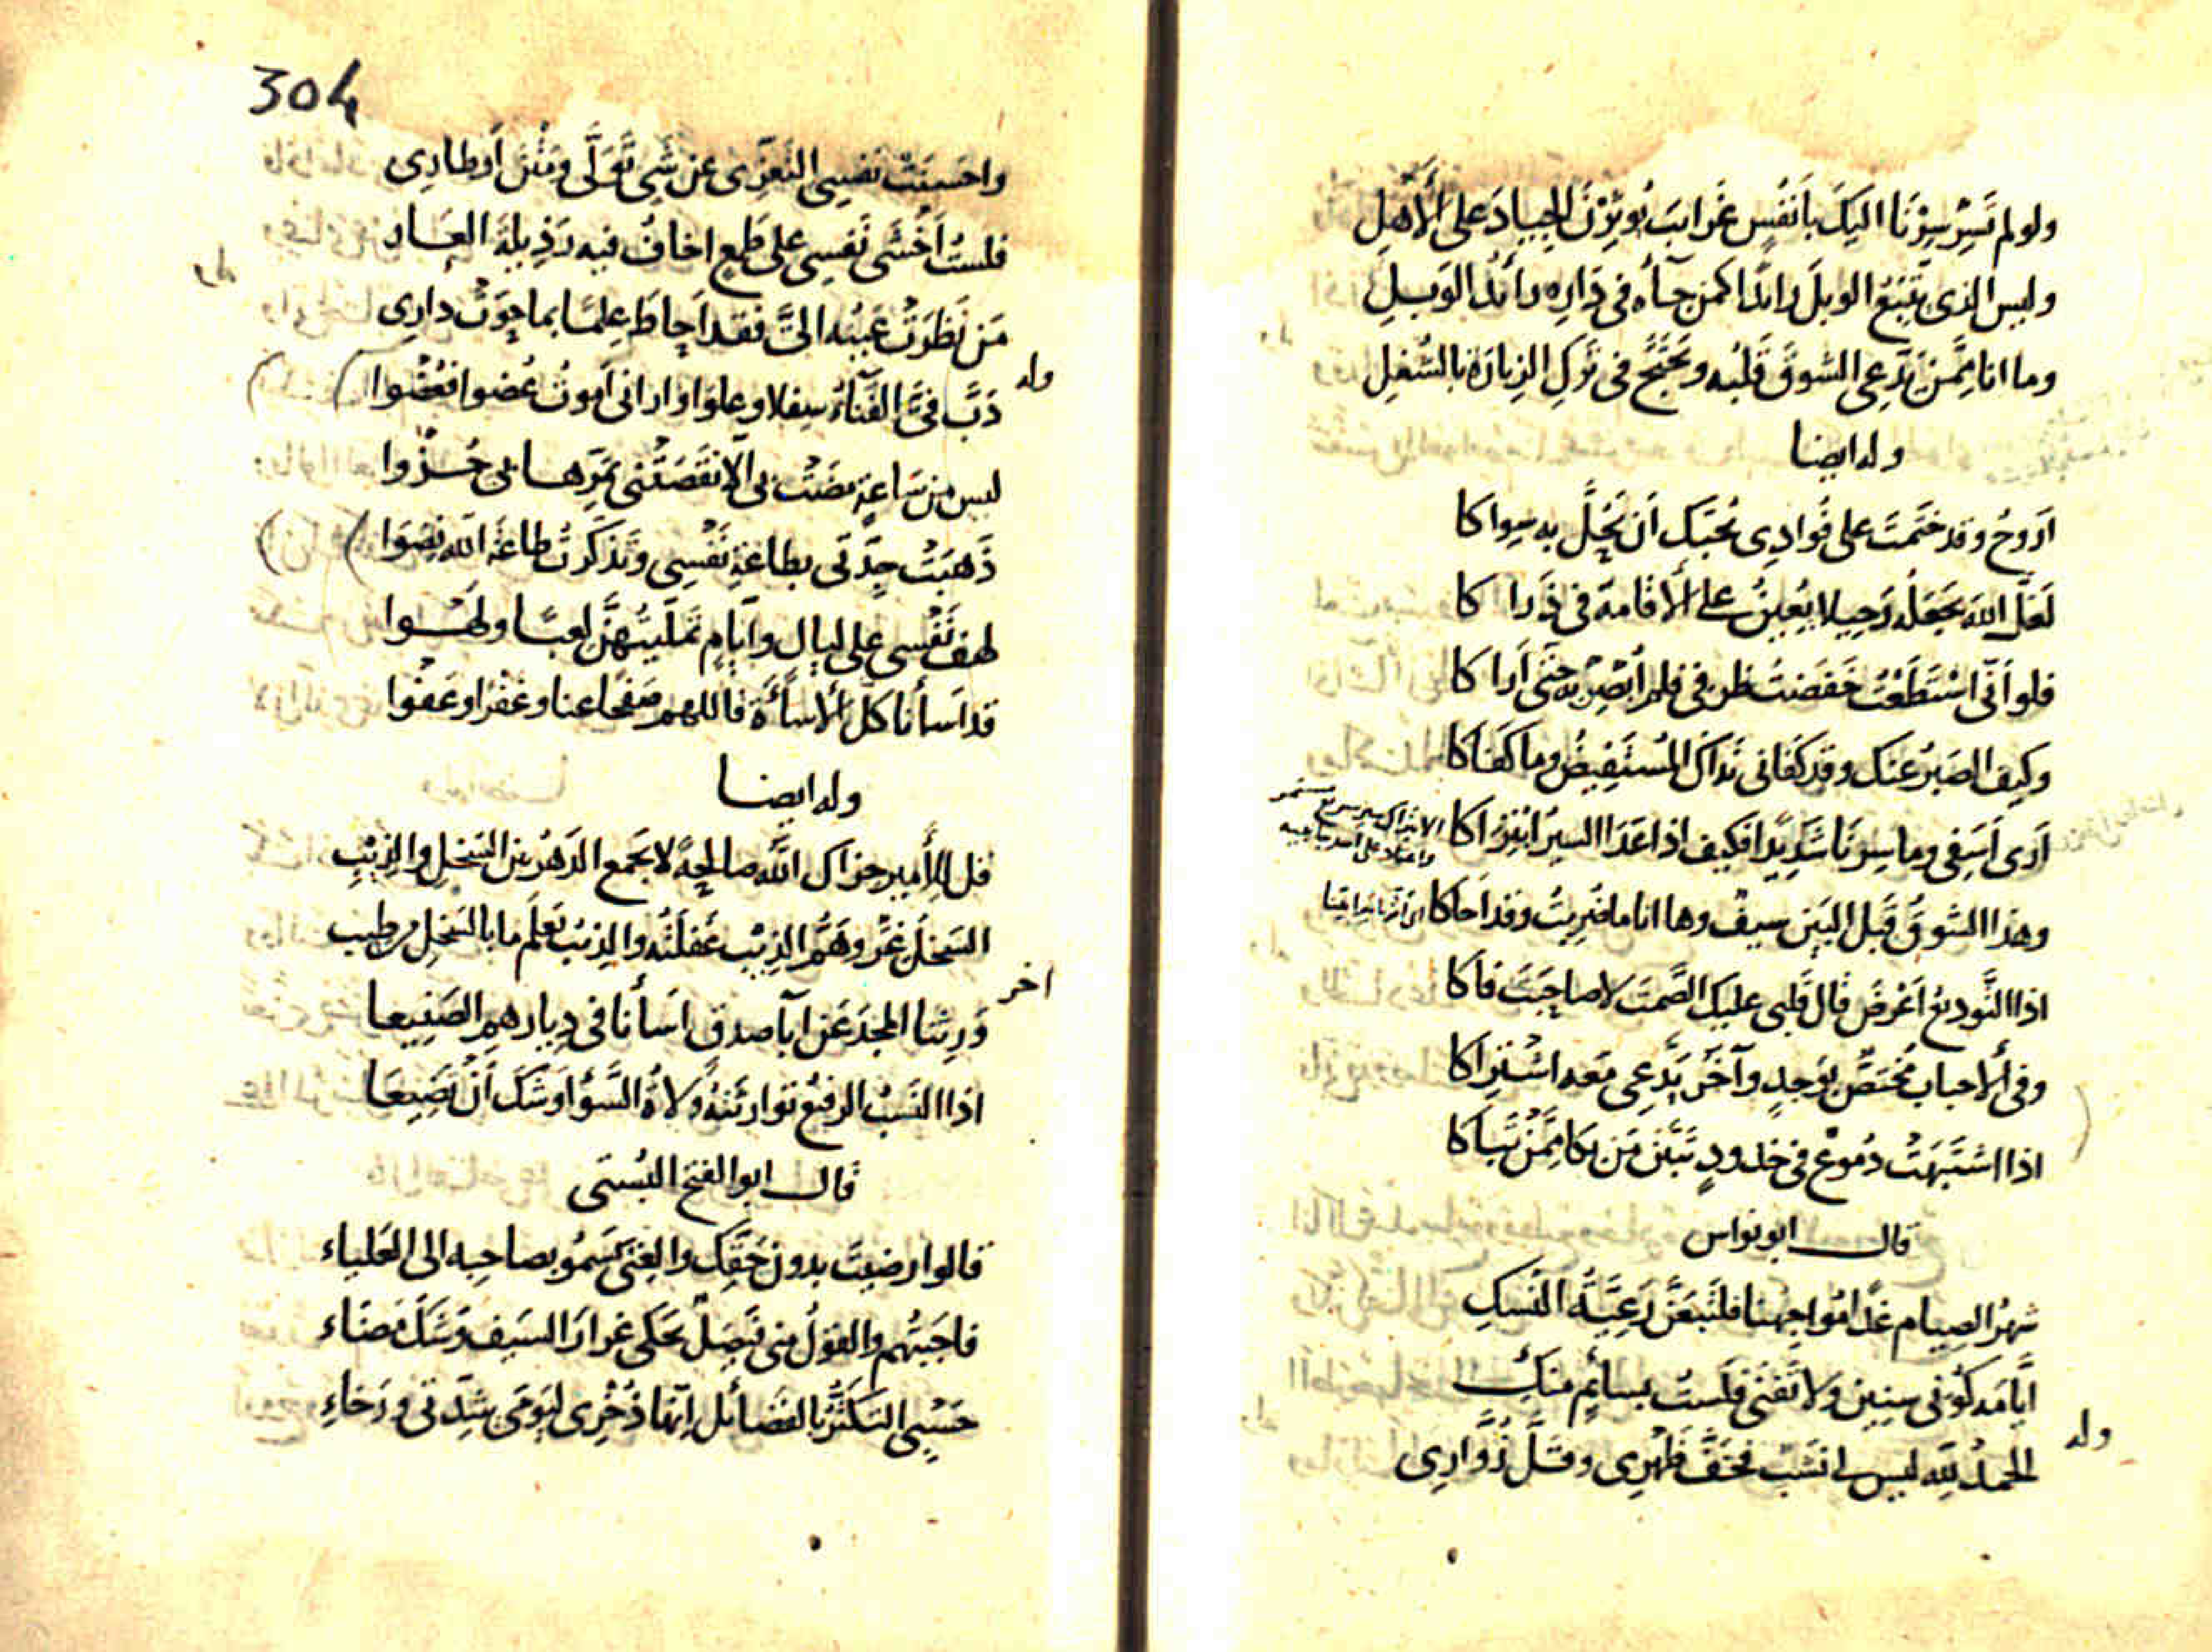 ولو لم تَسِرْ سِرْنَا اليكَ بأَنفُسٍ غَرايبَ يُوثِرْنَ الجيادَ على الأَهلِ
وليس الذى يَتَّبِعُ الوبلَ رائدًا كمن جآءه فى دَارِه رائدُ الوَبلِ
وما انا مِمَّن يَدَّعِى الشوقَ قَلبُه ويَحتَجُّ فى تَركِ الزيارة بالشُّغلِ
وله ايضا
اَروحُ وقد ختَمتَ على فُوادِى بحُبِّك أن يَحِلَّ به سِواكا
لَعَلَّ اللهَ يَجعَلُه رَحِيلا يُعِينُ على الأقامة فى ذَراكا
فلو اَنّى اسْتَطَعْتُ خَفَضتُ طرفى فلم اُبْصِرْ به حتى اَراكا
وكيف الصَبرُ عنك وقد كَفانى نَداكَ المُستَفِيضُ وما كفاكا
اَرى اَسَفِى وما سِرنَا شَدِيدًا فكيف اذا غَدَا السيرُ ابتِرَاكا
وهذا الشَوقُ قَبل البَينِ سيفٌ وها انا ما ضُرِبتُ وقد اَحاكا
اذا التَّوديعُ اَعْرَضَ قال قَلبى عليك الصَّمتَ لا صاحَبتَ فاكا
وفى الأحباب مُختَصٌّ بوَجدٍ وآخَرُ يَدَّعِى مَعه اشْتِراكا
اذا اشتَبَهَتْ دُموعٌ فى خدودٍ تَبَيَّنَ مَن بكا مِمَّنْ تَباكا
قال ابو نواس
شهرُ الصيام غدًا مُواجِهنا فلتبعَنَّ رَعِيَّةَ النُّسكِ
ايَّامَه كُونى سِنِينَ ولا تَفنَى فلَستُ بسائمٍ منكِ
وله
الحمدُ لِلّه ليس لى نَشَبٌ فخَفَّ ظَهْرِى وقَلَّ زُوَّارِى
304
واحسَنَتْ نَفسِى التَعَزِّى عن شَىٍ تَوَلَّى
فلستُ اَخْشَى نَفسِى على طَمعٍ اخافُ فيه رَذِيلةَ العار
من نَظَرَتْ عَينُه الىَّ فقد اَحاطَ عِلمًا بما حَوَتْ دارِى
وله
دَبَّ فىَّ الفَناءُ سِفلا وعلوا وارانى اَموتُ عُضوا فعُضْوا
ليس من سَاعةٍ مضَتْ بى الّا نقَصَتْنى بمَرِّها بى جُزْوا
ذَهَبَتْ جِدَّتى بطاعةِ نَفْسِى وتَذَكَّرتُ طاعةَ الله نِضوَا
لهفَ نَفْسِى على ليالٍ واَيّامٍ تَمَلَّيتُهُنَّ لعبًا ولَهْوا
قد اَسأنا كلَّ الأساءَة فاللهم صَفحًا عنا وغَفْرا وعَفْوا
وله ايضا
قل للأمير جزاك اللّه صالحةً لا يجمع الدَهْرُ بين السَخلِ والذِيْبِ
السَخلُ غِرٌّ وهَمُّ الذِيبِ غَفلَتُه والذِيبُ يَعلَم ما بالسَخلِ من طِيب
اخر
وَرِثنا المجدَ عن آباَ صدق اَسأنا فى دِيارهم الصَنِيعا
اذا النَسبُ الرفيعُ توارثَتْهُ وُلاةُ السَّوءُ اوشَكَ اَنْ يَضِيعَا
قال ابو الفتح البُستى
قالوا رضِيتَ بدون حَقِّك والغِنَى يَسمُو بصاحبه الى العَلياء
فاجَبتُهم والقولُ منى فَيصلٌ يحكى غرارَ السَيف وَشكَ مَضاء
حَسْبِى التَكَثُّرُ بالفَضائل اِنّها ذُخْرِى ليَومَى شِدَّتى ورَخاءِ